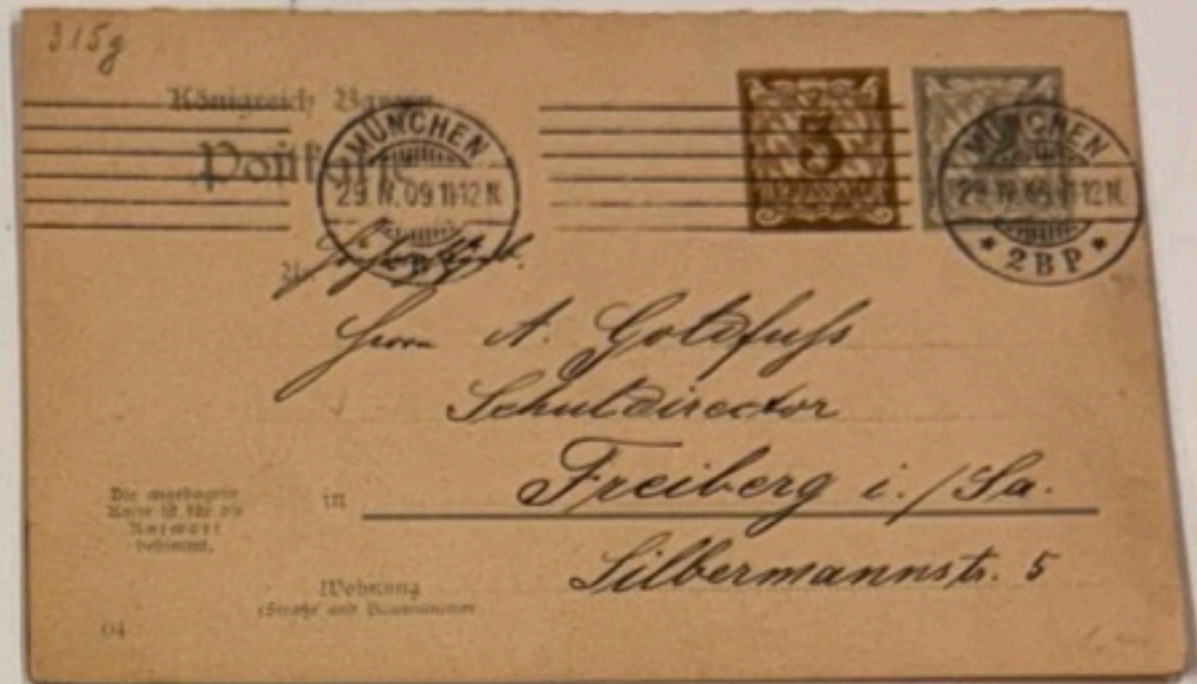 315g
Königreich Bayern
Postkarte
MÜNCHEN
29.IV.09.11-12N.
3
MÜNCHEN
29.IV.09.11-12N.
* 2BP *
Herrn A. Goldfuß
Schuldirector
in Freiberg i./Sa.
Silbermannstr. 5
Die angebogene
Karte ist für die
Antwort
bestimmt.
Wohnung
(Straße und Hausnummer
04